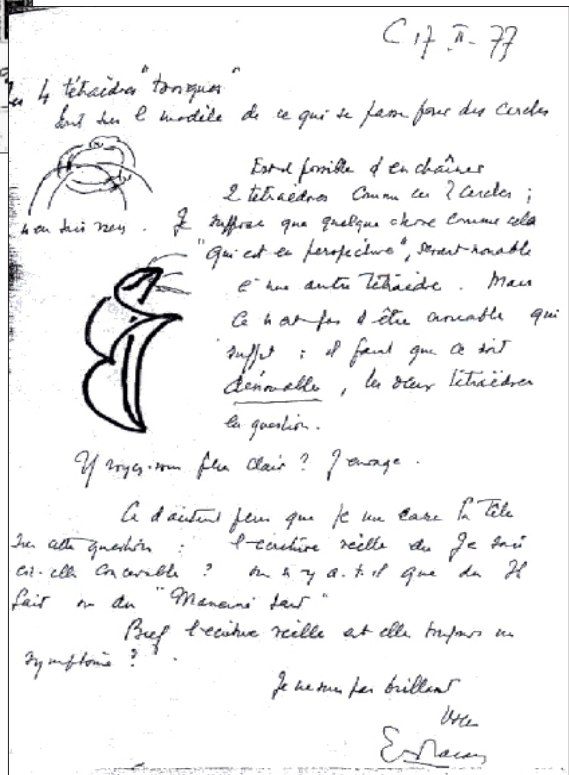 C 17 II - 77
4 tétraèdres "toriques"
sur le modèle de ce qui se passe pour des cercles
Est-il possible d'enchaîner
2 tétraèdres comme ces 2 cercles ;
n'en sais rien. Je suppose que quelque chose comme cela
"qui est en perspective", serait nouable
à une autre tétraèdre. Mais
ce n'est pas d'être nouable qui
suffit : il faut que ce soit
dénouable, les deux tétraèdres
en question.
Y voyez-vous plus clair ? J'enrage.
Ce d'autant plus que je me casse la tête
sur cette question : l'écriture réelle du Je sais
est-elle concevable ? ou n'y a-t-il que du Il
sait ou du " sait"
Bref l'écriture réelle est-elle toujours un
symptôme ?
Je ne suis pas brillant
Votre